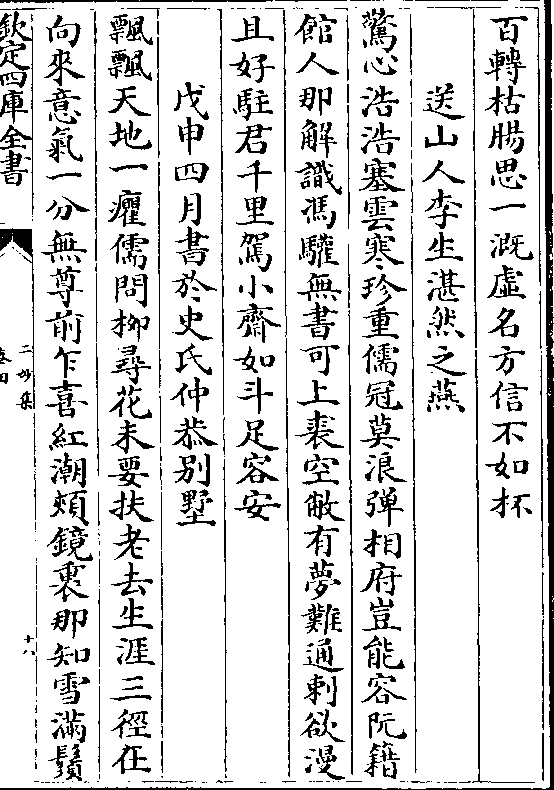 百轉枯腸思一溉虛名方信不如杯
送山人李生湛然之燕
驚心浩浩塞雲寒珍重儒冠莫浪彈相府豈能容阮籍
館人那解識馮驩無書可上裘空敝有夢難通刺欲漫
且好駐君千里駕小齋如斗足容安
戊申四月書於史氏仲恭別墅
飄飄天地一癯儒問柳尋花未要扶老去生涯三徑在
向來意氣一分無尊前乍喜紅潮頰鏡裏那知雪滿鬚
欽定四庫全書
二妙集
卷四
十八